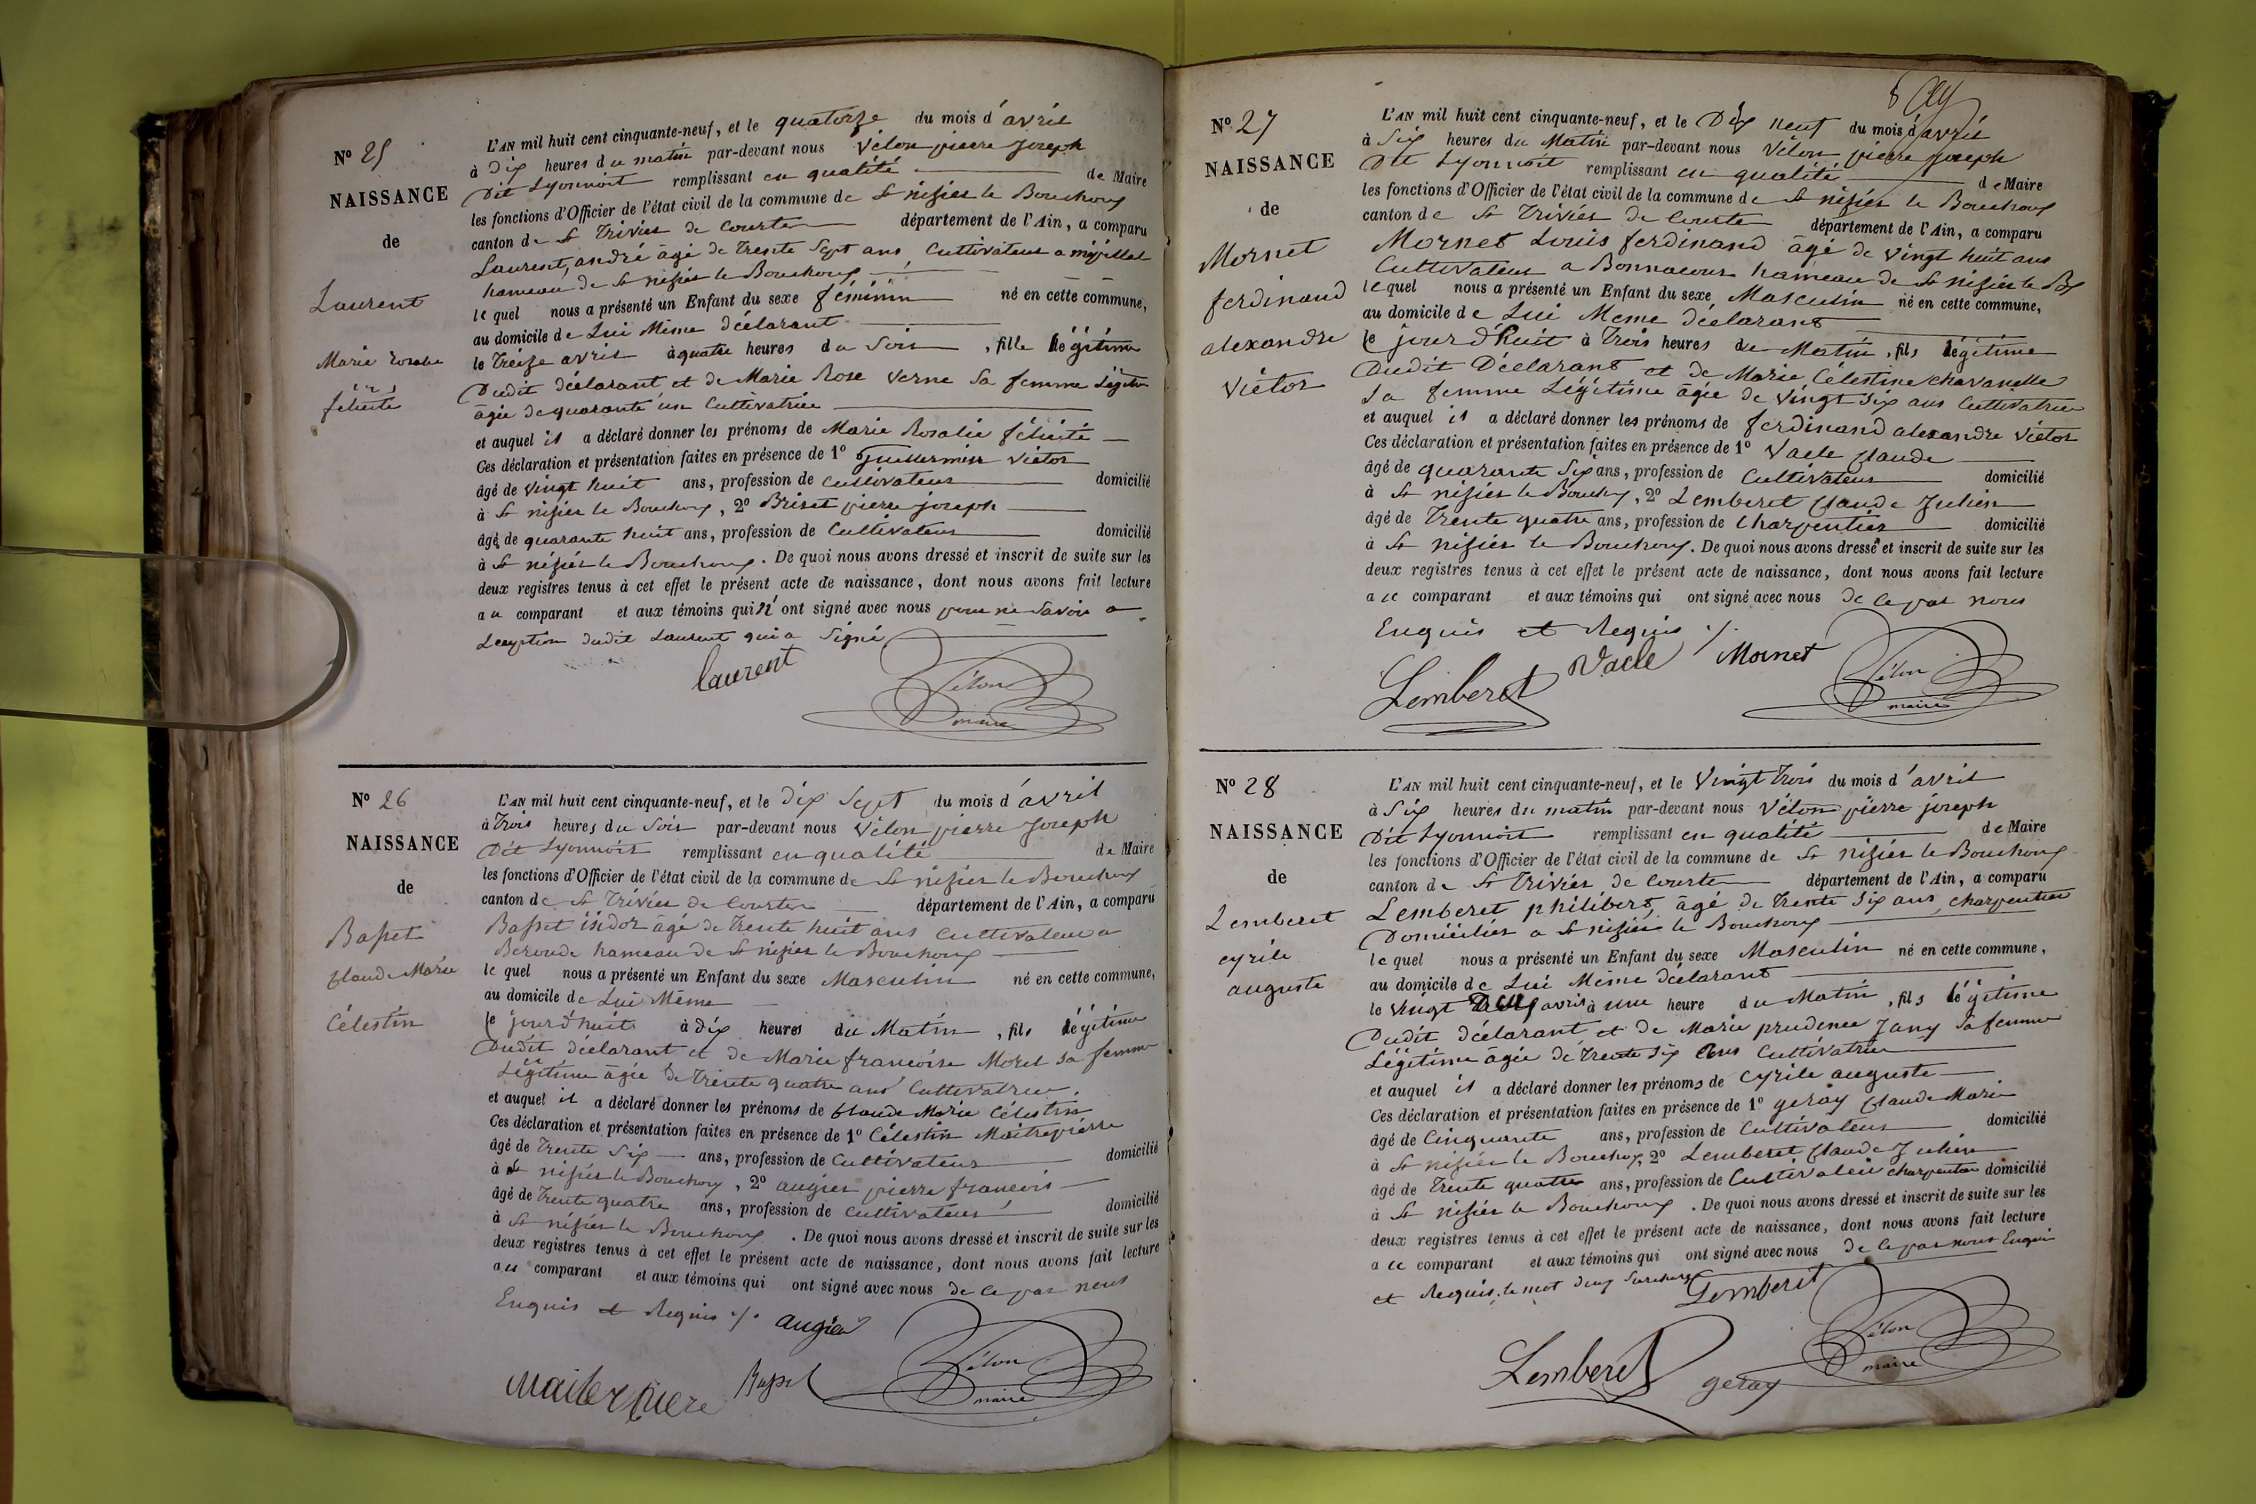 N° 25
NAISSANCE
de
Laurent
Marie Rosalie
félicité
L'AN mil huit cent cinquante-neuf, et le quatorze du mois d'avril
à Dix heures du matin par-devant nous Vélon pierre joseph
Dit Lyonnois remplissant en qualité de Maire
les fonctions d'Officier de l'état civil de la commune de St nisier le Bouchoux
canton de St Trivier de Courtes département de l'Ain, a comparu
Laurent, andré âgé de Trente Sept ans, Cultivateur a
hameau de St nisier le Bouchoux
lequel nous a présenté un Enfant du sexe féminin né en cette commune,
au domicile de Lui Même déclarant
le Treize avril à quatre heures du Soir, fille légitime
Dudit déclarant et de Marie Rose Verne Sa femme Légitime
âgée de quarante un Cultivatrice
et auquel il a déclaré donner les prénoms de Marie Rosalie félicité
Ces déclaration et présentation faites en présence de 1° Guillermin Victor
âgé de Vingt huit ans, profession de Cultivateur domicilié
à St nisier le Bouchoux, 2° Briset pierre joseph
âgé de quarante huit ans, profession de Cultivateur domicilié
à St nisier le Bouchoux. De quoi nous avons dressé et inscrit de suite sur les
deux registres tenus à cet effet le présent acte de naissance, dont nous avons fait lecture
au comparant et aux témoins qui n'ont signé avec nous pour ne Savoir a
Lexeption dudit Laurent qui a Signé
laurent
Vélon
maire
N° 26
NAISSANCE
de
Basset
Claude Marie
Célestin
L'AN mil huit cent cinquante-neuf, et le dix Sept du mois d'avril
à Trois heures du Soir par-devant nous Vélon pierre Joseph
Dit Lyonnois remplissant en qualité de Maire
les fonctions d'Officier de l'état civil de la commune de St nisier le Bouchoux
canton de St Trivier de Courtes département de l'Ain, a comparu
Basset isidor âgé de Trente huit ans Cultivateur a
Beroude hameau de St nisier le Bouchoux
lequel nous a présenté un Enfant du sexe Masculin né en cette commune,
au domicile de Lui Même
le jourd'huit à dix heures du Matin, fils légitime
Dudit déclarant et de Marie francoise Morel sa femme
Légitime âgée de trente quatre ans Cultivatrice
et auquel il a déclaré donner les prénoms de Claude Marie Célestin
Ces déclaration et présentation faites en présence de 1° Célestin Maitrepierre
âgé de Trente Six ans, profession de Cultivateur domicilié
à St nisier le Bouchoux, 2° augier pierre francois
âgé de Trente quatre ans, profession de Cultivateur domicilié
à St nisier le Bouchoux. De quoi nous avons dressé et inscrit de suite sur les
deux registres tenus à cet effet le présent acte de naissance, dont nous avons fait lecture
au comparant et aux témoins qui ont signé avec nous de ce par nous
Enquis et Requis ./. augier
Maiterpiere Basset Vélon
maire
N° 27
NAISSANCE
de
Mornet
ferdinand
alexandre
Victor
8
L'AN mil huit cent cinquante-neuf, et le Dix neuf du mois d'avril
à Six heures du Matin par-devant nous Vélon pierre joseph
Dit Lyonnois remplissant en qualité de Maire
les fonctions d'Officier de l'état civil de la commune de St nisier le Bouchoux
canton de St Trivier de Courtes département de l'Ain, a comparu
Mornet Louis ferdinand âgé de Vingt huit ans
Cultivateur a Bonnacour hameau de St nisier le Box
lequel nous a présenté un Enfant du sexe Masculin né en cette commune,
au domicile de Lui Meme déclarant
le jourd'huit à Trois heures du Matin, fils légitime
Dudit Déclarant et de Marie Célestine Chavanelle
Sa femme Légitime âgée de Vingt Six ans Cultivatrice
et auquel il a déclaré donner les prénoms de ferdinand alexandre Victor
Ces déclaration et présentation faites en présence de 1° Vacle Claude
âgé de quarante Six ans, profession de Cultivateur domicilié
à St nisier le Bouchoux, 2° Lemberet Claude Julien
âgé de Trente quatre ans, profession de Charpentier domicilié
à St nisier le Bouchoux. De quoi nous avons dressé et inscrit de suite sur les
deux registres tenus à cet effet le présent acte de naissance, dont nous avons fait lecture
a ce comparant et aux témoins qui ont signé avec nous de ce par nous
Enquis et Requis ./.
Lemberet Vacle Mornet Vélon
maire
N° 28
NAISSANCE
de
Lemberet
cyrile
auguste
L'AN mil huit cent cinquante-neuf, et le Vingt Trois du mois d'avril
à Six heures du matin par-devant nous Vélon pierre joseph
Dit Lyonnois remplissant en qualité de Maire
les fonctions d'Officier de l'état civil de la commune de St nisier le Bouchoux
canton de St Trivier de Courtes département de l'Ain, a comparu
Lemberet philibert, âgé de Trente Six ans, charpentier
Domicilier a St nisier le Bouchoux
lequel nous a présenté un Enfant du sexe Masculin né en cette commune,
au domicile de Lui Même déclarant
le Vingt Deux avril à une heure du Matin, fils légitime
Dudit déclarant et de Marie prudence Jany Sa femme
Légitime âgée de Trente Six ans Cultivatrice
et auquel il a déclaré donner les prénoms de Cyrile auguste
Ces déclaration et présentation faites en présence de 1° geray Claude Marie
âgé de Cinquante ans, profession de Cultivateur domicilié
à St nisier le Bouchoux, 2° Lemberet Claude Julien
âgé de Trente quatre ans, profession de Cultivateur charpentier domicilié
à St nisier le Bouchoux. De quoi nous avons dressé et inscrit de suite sur les
deux registres tenus à cet effet le présent acte de naissance, dont nous avons fait lecture
a ce comparant et aux témoins qui ont signé avec nous de ce par nous Enquis
et Requis, le mot deux Surchargé Lemberet
Lemberet geray Vélon
maire